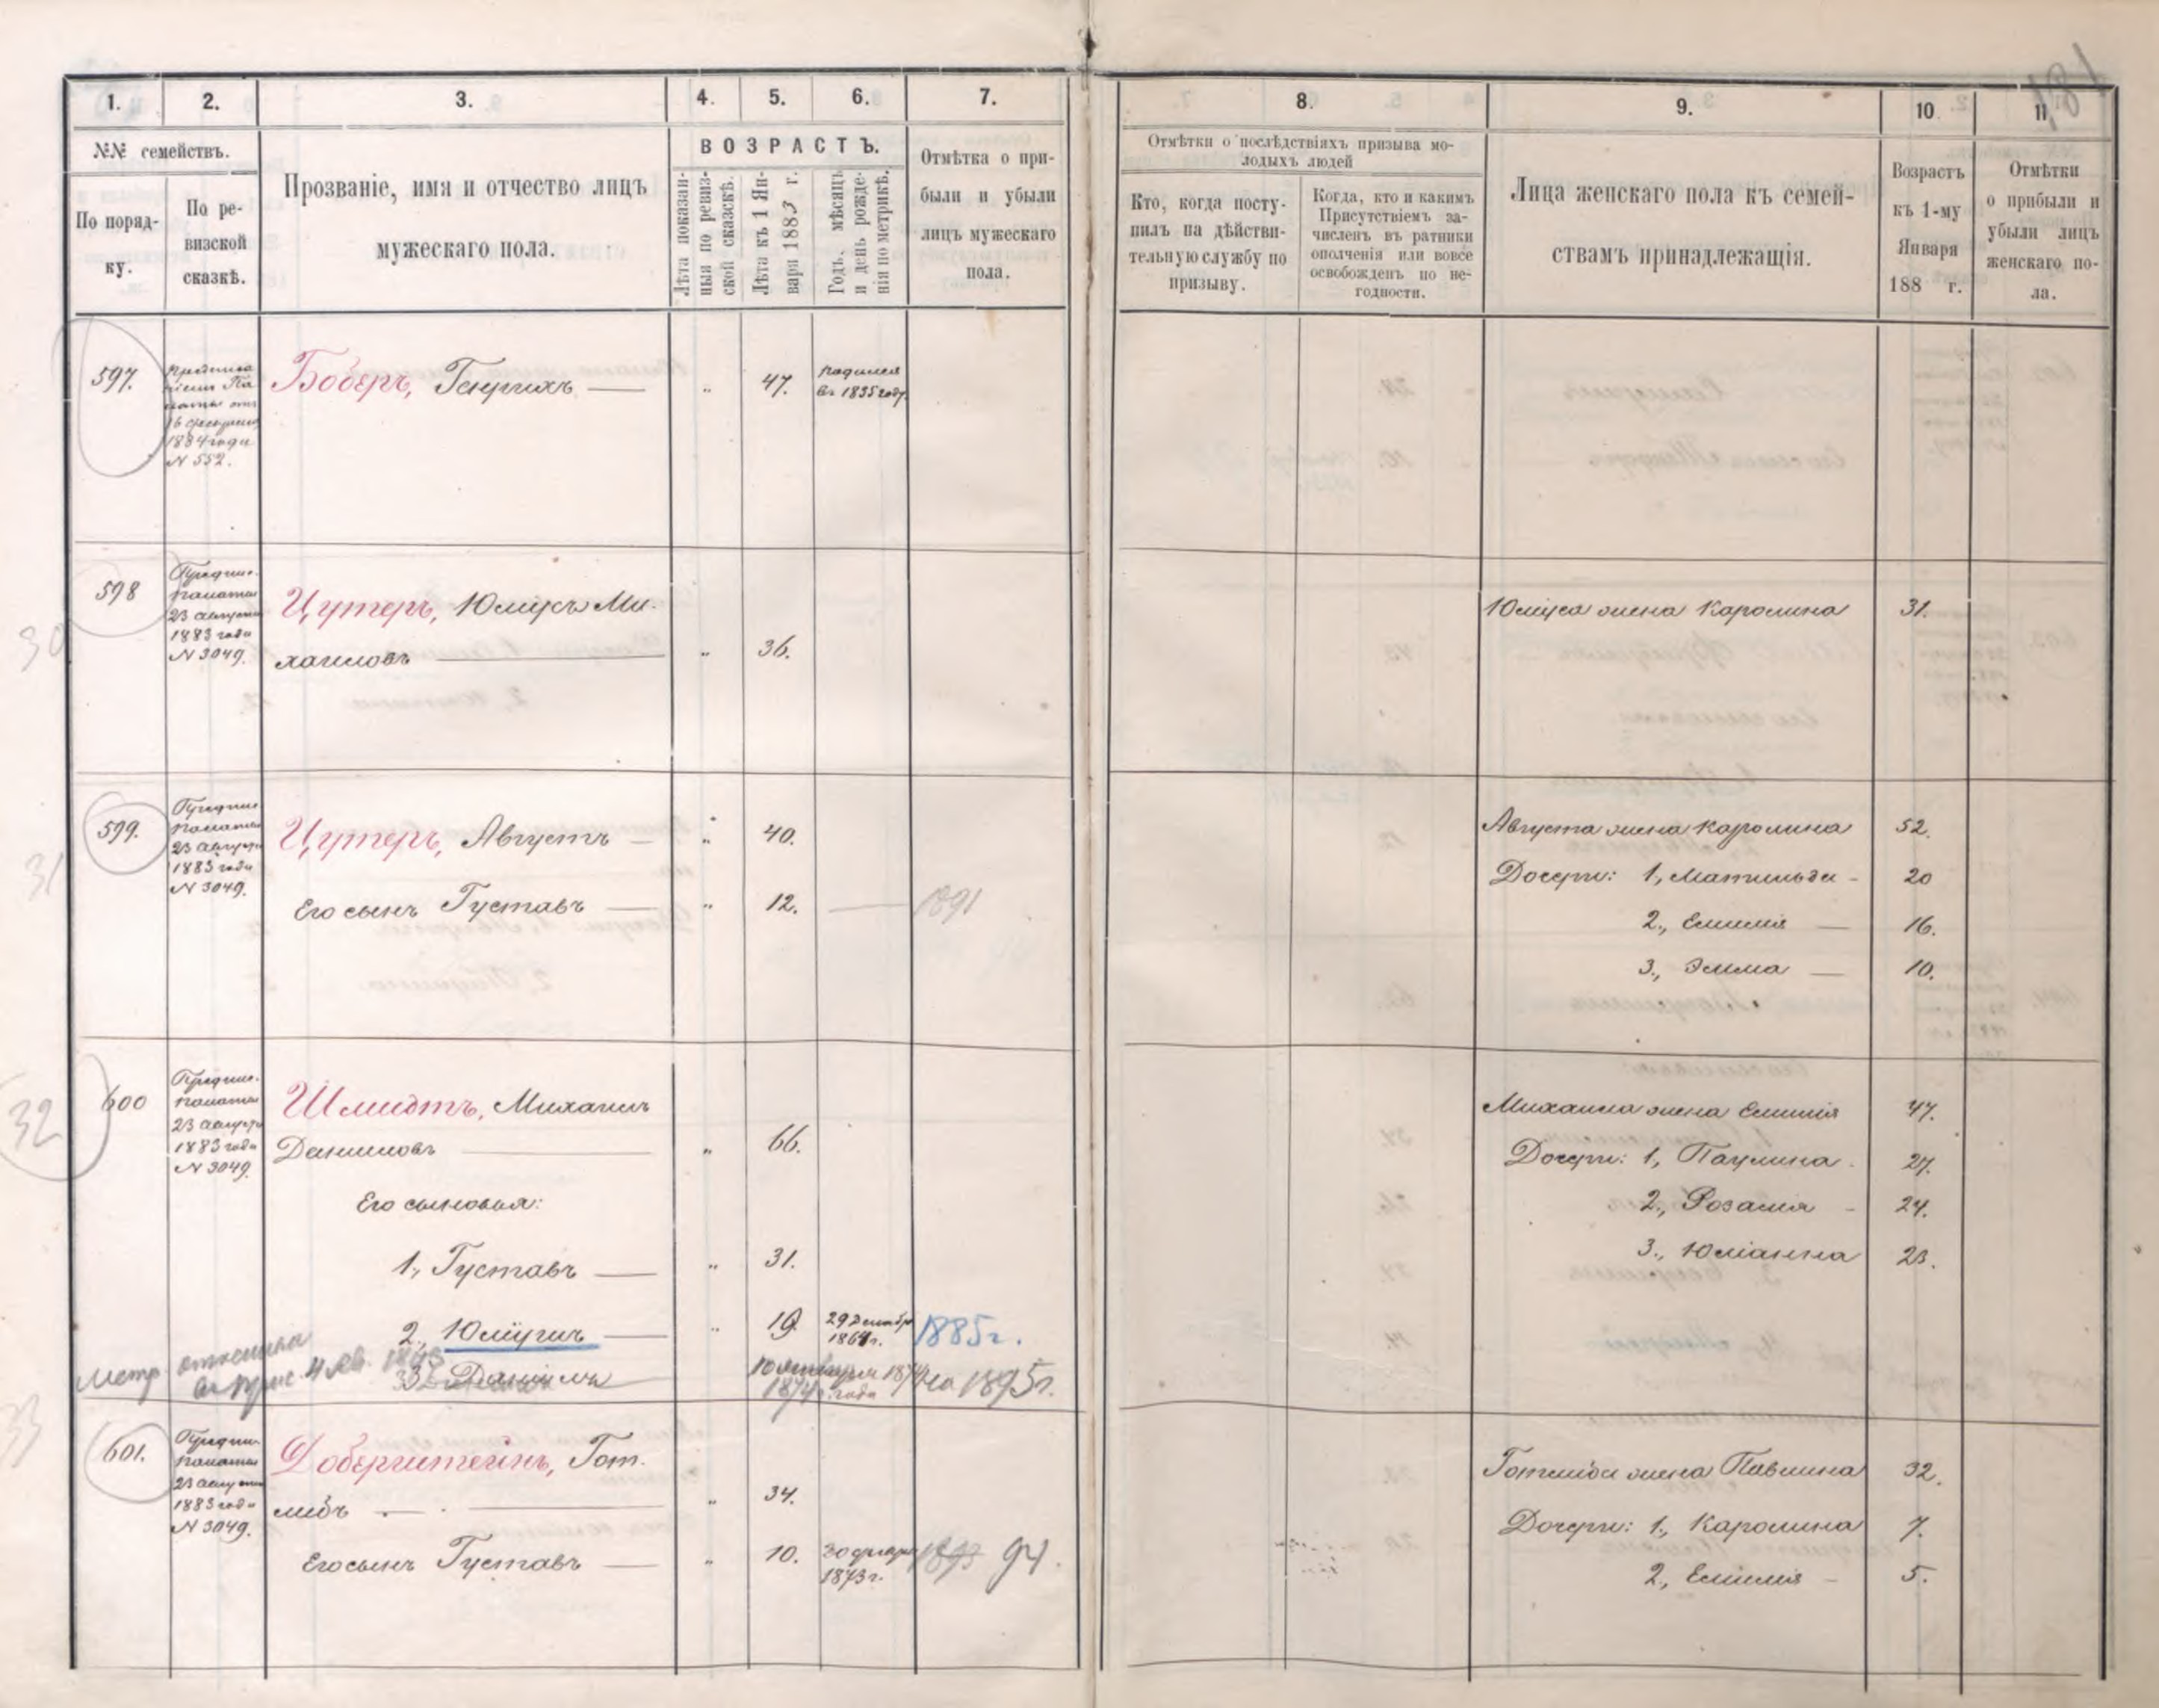 181
1.
2.
3.
4.
5.
6.
7.
8.
9.
10
11
№№ семействъ.
По поряд-
ку.
По ре-
визской
сказкѣ.
Прозваніе, имя и отчество лицъ
мужескаго пола.
ВОЗРАСТЪ.
Лѣта показан-
ныя по ревиз-
ской сказскѣ.
Лѣта къ 1 Ян-
варя 1883 г.
Годъ, мѣсяцъ
и день рожде-
нія по метрикѣ.
Отмѣтка о при-
были и убыли
лицъ мужескаго
пола.
Отмѣтки о послѣдствіяхъ призыва мо-
лодыхъ людей
Кто, когда посту-
пилъ на дѣйстви-
тельную службу по
призыву.
Когда, кто и какимъ
Присутствіемъ за-
численъ въ ратники
ополченія или вовсе
освобожденъ по не-
годности.
Лица женскаго пола къ семей-
ствамъ принадлежащія.
Возрастъ
къ 1-му
Января
188 г.
Отмѣтки
о прибыли и
убыли лицъ
женскаго по-
ла.
597.
Предписа
ніемъ Па
латы отъ
16
1884 года
N 552.
Боберъ, Генрихъ —
"
47.
родился
въ 1835 году.
30
598
Предпис.
палаты
23 августа
1883 года
N 3049.
Цутеръ, Юліусъ Ми-
хаиловъ —
"
36.
Юліуса жена Каролина
31.
31
599.
Предпис
палаты
23 августа
1883 года
N 3049.
Цутеръ, Августъ —
"
40.
Его сынъ Густавъ —
"
12.
—
1891
Августа жена Каролина
52.
Дочери: 1, Матильда -
20
2., Емилія —
16.
3., Эмма —
10.
32
600
Предпис.
палаты
23 августа
1883 года
N 3049.
Шмидтъ, Михаилъ
Даниловъ —
"
66.
Его сыновья:
1., Густавъ —
"
31.
2., Юліусъ —
"
19.
29 Декабр
1864 г.
1885 г.
3, Даніилъ
1874 года
на 1895 г.
Метр. отнесена
Михаила жена Емилія
47.
Дочери: 1, Паулина.
27.
2., Розалія -
24.
3., Юліанна
23.
33
601.
Предпис
палаты
23 августа
1883 года
N 3049.
Доберштейнъ, Гот-
либъ —
"
34.
Его сынъ Густавъ —
"
10.
1873 г.
1893 94.
Готлиба жена Павлина
32.
Дочери: 1., Каролина
7.
2, Емилія -
5.